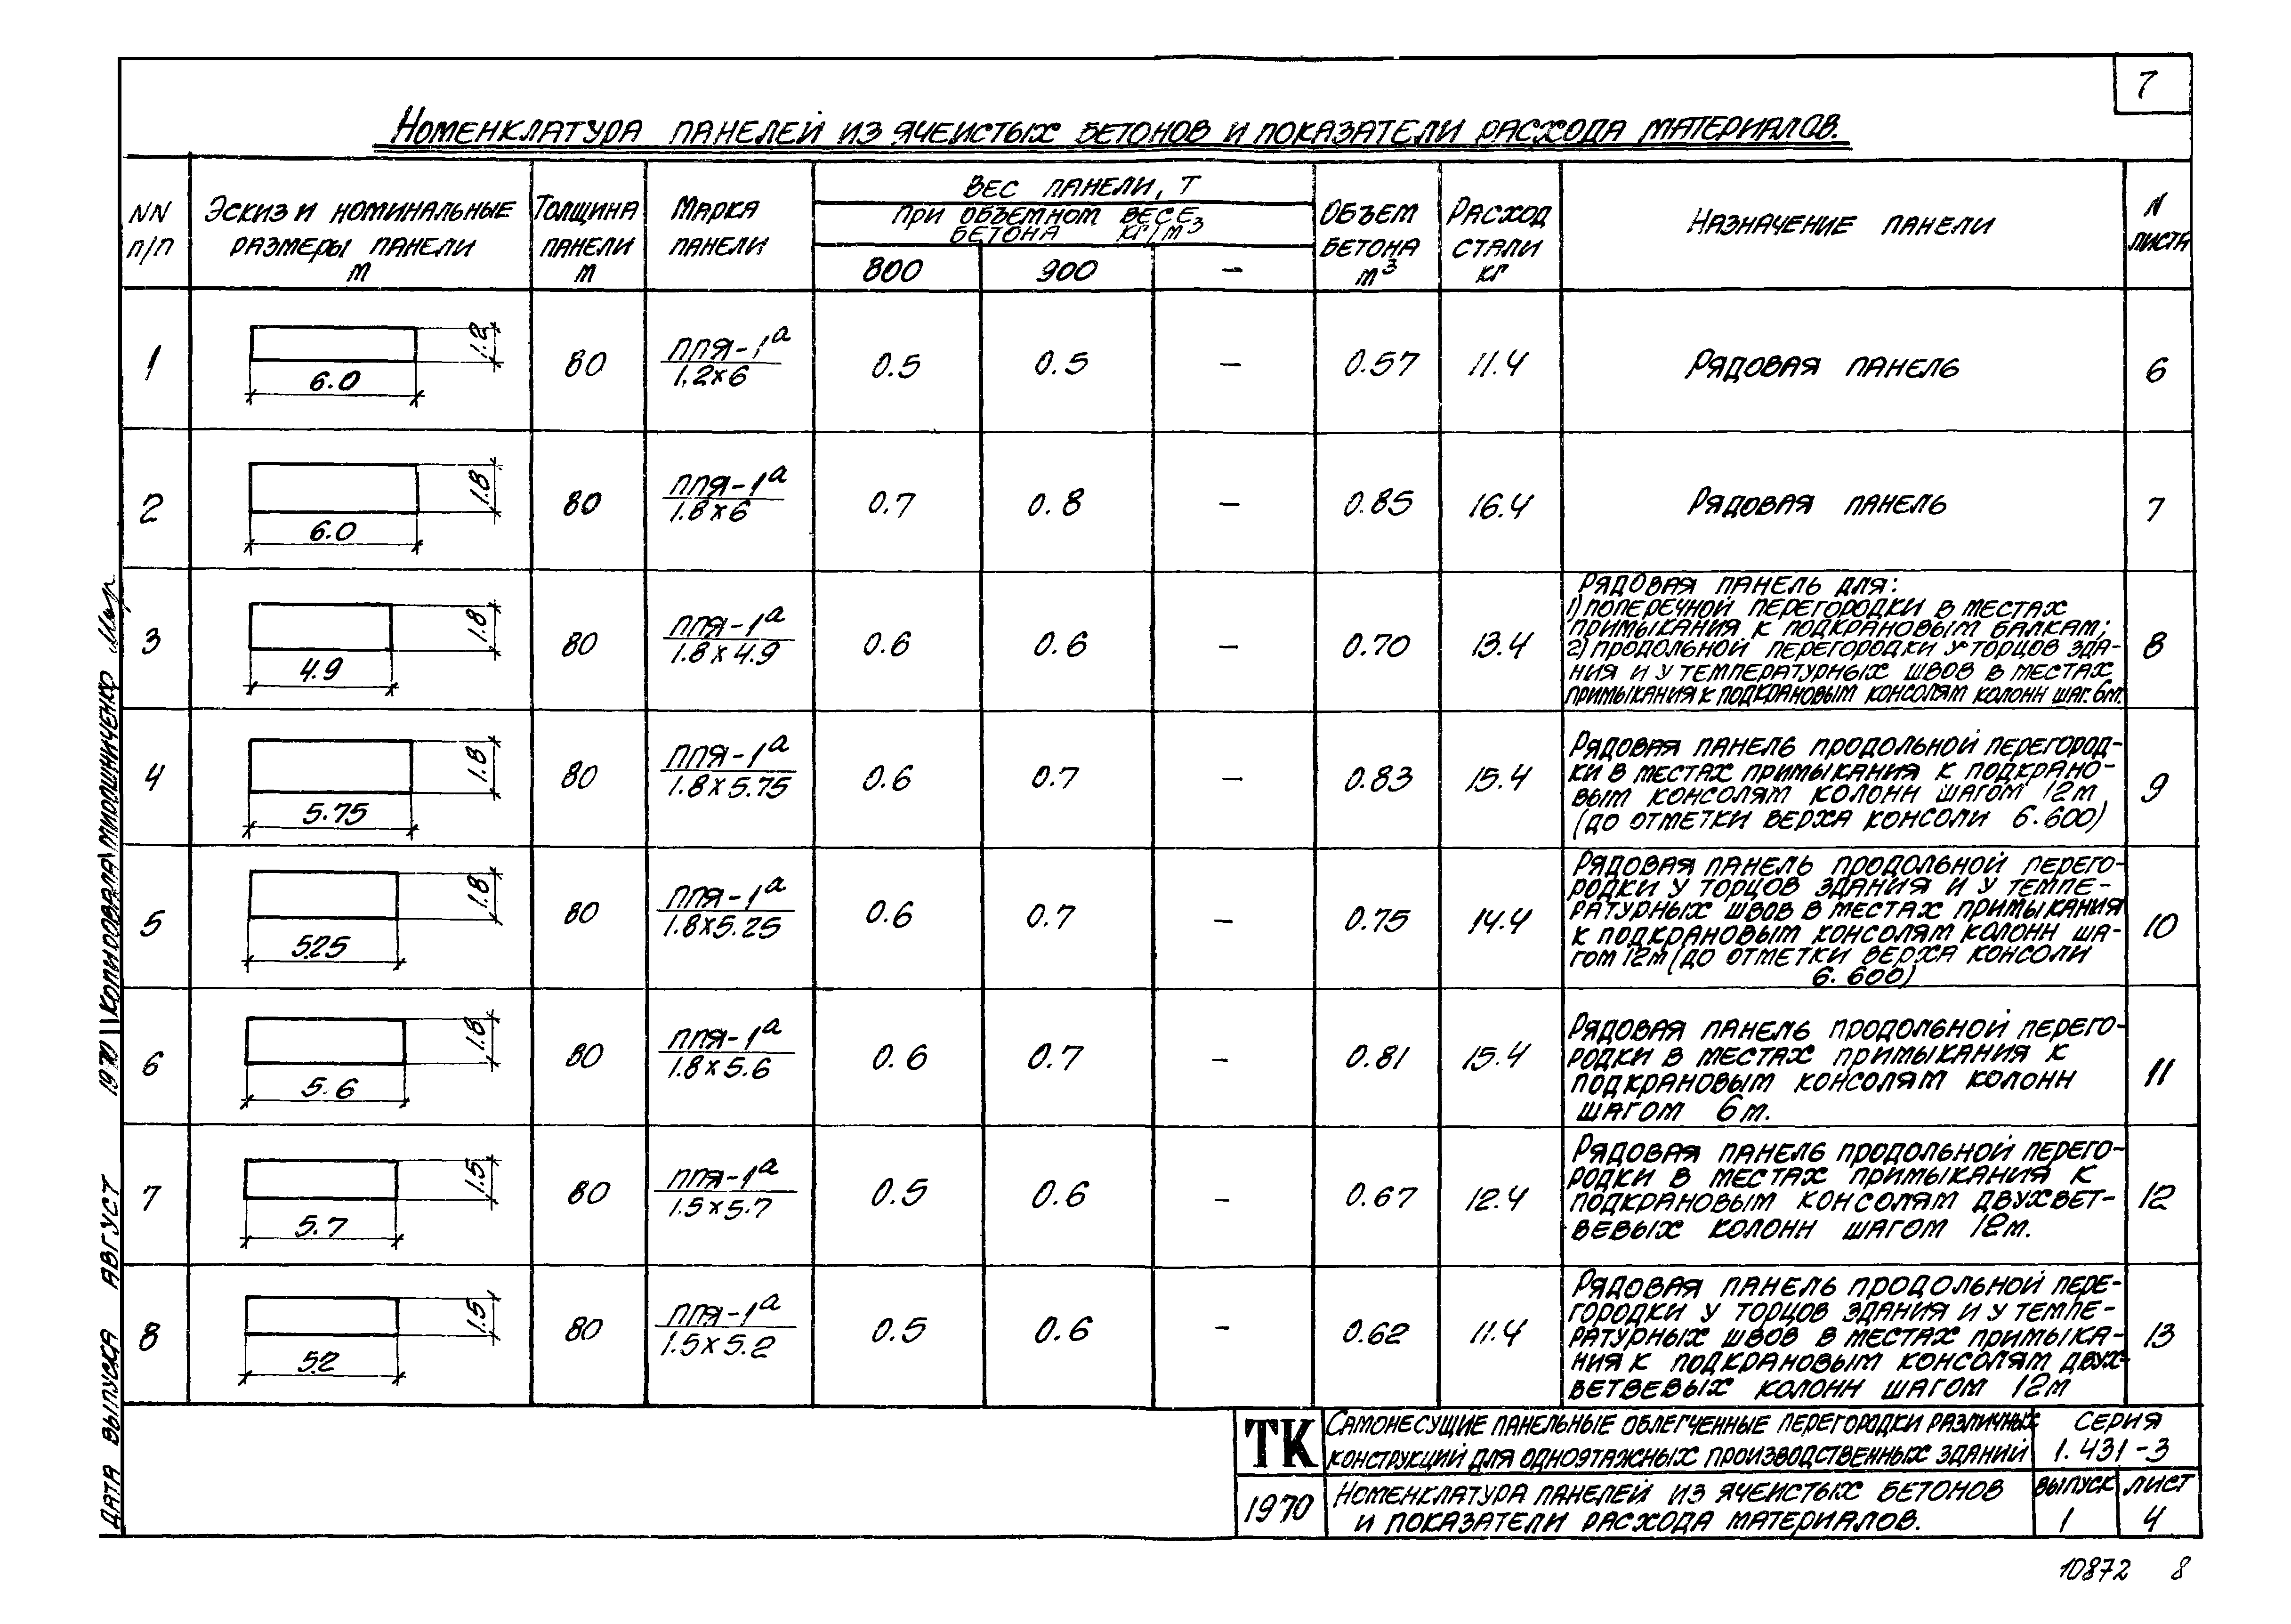 7
Номенклатура панелей из ячеистых бетонов и показатели расхода материалов.
NN п/п
Эскиз и номинальные размеры панели м
Толщина панели м
Марка панели
Вес панели, т
при объемном весе бетона кг/м3
800
900
–
Объем бетона м3
Расход стали кг
Назначение панели
N листа
1
6.0
1.2
80
ППЯ-1а
1.2х6
0.5
0.5
–
0.57
11.4
Рядовая панель
6
2
6.0
1.8
80
ППЯ-1а
1.8х6
0.7
0.8
–
0.85
16.4
Рядовая панель
7
3
4.9
1.8
80
ППЯ-1а
1.8х4.9
0.6
0.6
–
0.70
13.4
Рядовая панель для:
1) поперечной перегородки в местах
примыкания к подкрановым балкам;
2) продольной перегородки у торцов зда-
ния и у температурных швов в местах
примыкания к подкрановым консолям колонн шаг. 6м.
8
4
5.75
1.8
80
ППЯ-1а
1.8х5.75
0.6
0.7
–
0.83
15.4
Рядовая панель продольной перегород-
ки в местах примыкания к подкрано-
вым консолям колонн шагом 12м
(до отметки верха консоли 6.600)
9
5
525
1.8
80
ППЯ-1а
1.8х5.25
0.6
0.7
–
0.75
14.4
Рядовая панель продольной перего-
родки у торцов здания и у темпе-
ратурных швов в местах примыкания
к подкрановым консолям колонн ша-
гом 12м (до отметки верха консоли
6.600)
10
6
5.6
1.8
80
ППЯ-1а
1.8х5.6
0.6
0.7
–
0.81
15.4
Рядовая панель продольной перего-
родки в местах примыкания к
подкрановым консолям колонн
шагом 6м.
11
7
5.7
1.5
80
ППЯ-1а
1.5х5.7
0.5
0.6
–
0.67
12.4
Рядовая панель продольной перего-
родки в местах примыкания к
подкрановым консолям двухвет-
вевых колонн шагом 12м.
12
8
52
1.5
80
ППЯ-1а
1.5х5.2
0.5
0.6
–
0.62
11.4
Рядовая панель продольной пере-
городки у торцов здания и у темпе-
ратурных швов в местах примыка-
ния к подкрановым консолям двух-
ветвевых колонн шагом 12м
13
ТК
1970
Самонесущие панельные облегченные перегородки различных
конструкций для одноэтажных производственных зданий
Серия
1.431-3
Номенклатура панелей из ячеистых бетонов
и показатели расхода материалов.
Выпуск
1
Лист
4
10872 8
Дата выпуска август 1970 Копировала Мирошниченко